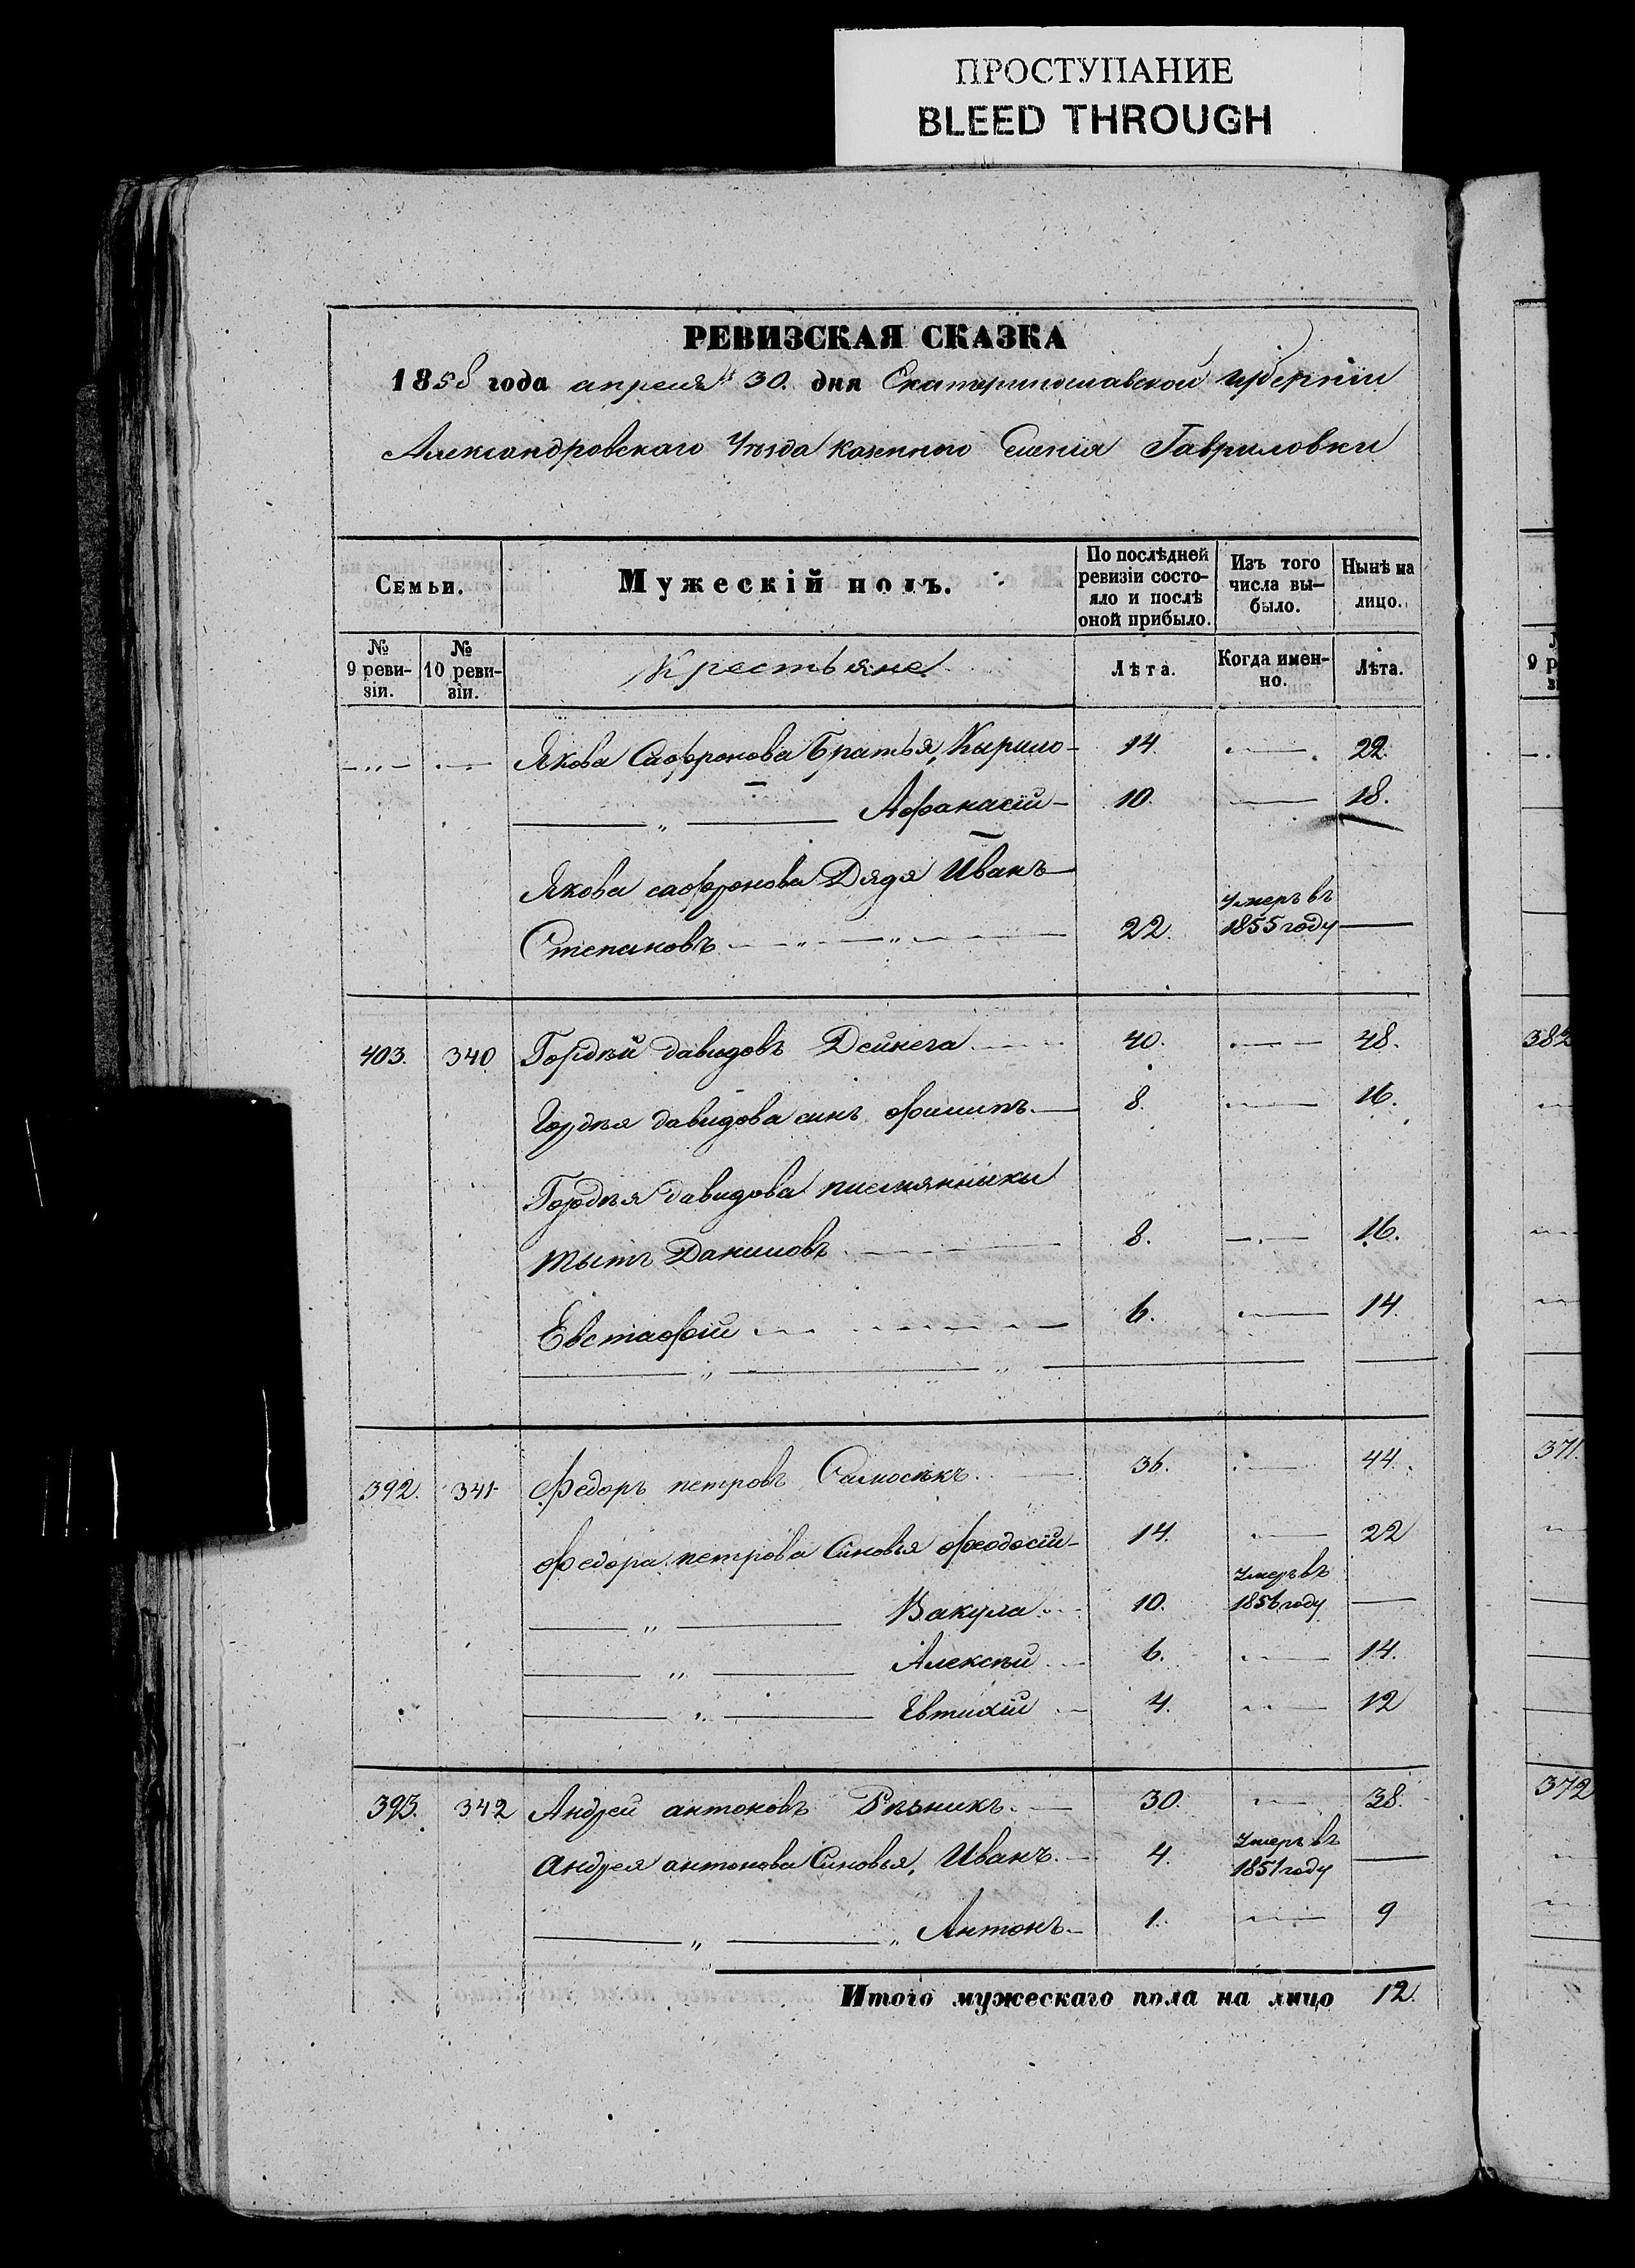 ПРОСТУПАНИЕ
BLEED THROUGH
РЕВИЗСКАЯ СКАЗКА
1858 года апреля 30. дня Екатеринославской губерніи
Александровскаго Уѣзда казенного Селенія Гавриловки
Семьи. Мужескій полъ. По послѣдней ревизіи состояло и послѣ оной прибыло. Изъ того числа выбыло. Нынѣ на лицо.
№ 9 ревизіи. № 10 ревизіи. Крестьяне Лѣта. Когда именно. Лѣта.
Якова Сафронова Братья, Кырило 14. 22.
„ Афанасій 10. 18.
Якова сафронова Дядя Иванъ
Степановъ 22. Умеръ въ 1855 году
403. 340 Гордѣй давидовъ Дейнега 40. 48.
Гордѣя давидова синъ филипъ 8. 16.
Гордѣя давидова племянныки
тытъ Даниловъ 8. 16.
Евстафій 6. 14.
392. 341 Федоръ петровъ Самосѣкъ 36. 44.
федора петрова Синовья феодосій 14. 22
„ Вакула 10. Умеръ въ 1856 году
„ Алексѣй 6. 14.
„ Евтихій 4. 12
393. 342 Андрей антоновъ Рѣзникъ 30. 38.
андрея антонова Синовья, Иванъ 4. Умеръ въ 1851 году
„ „ Антонъ 1. 9
Итого мужескаго пола на лицо 12.
9
382
371.
372